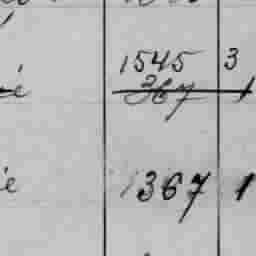 1545 3
367 1
é
1367 1